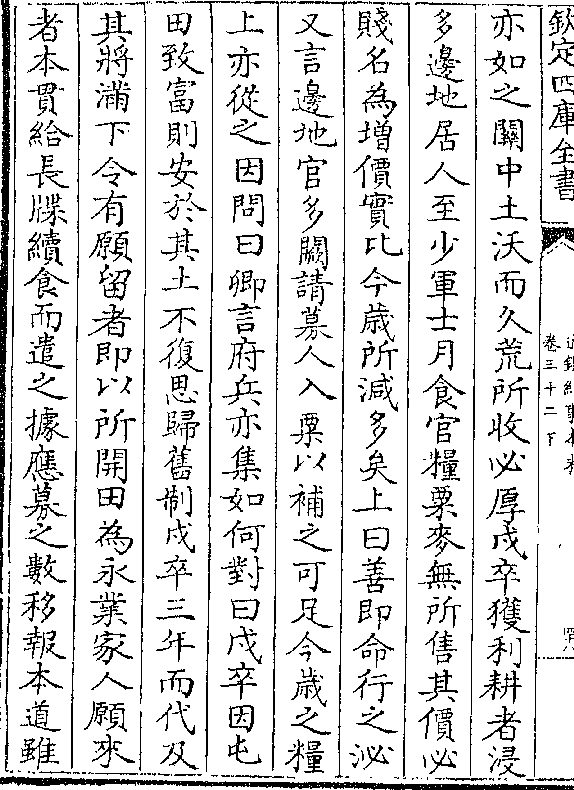 欽定四庫全書
通鑑紀事本末
卷三十二下
亦如之關中土沃而久荒所收必厚戍卒獲利耕者浸
多邊地居人至少軍士月食官糧粟麥無所售其價必
賤名為增價實比今歳所減多矣上曰善即命行之泌
又言邊地官多闕請募人入粟以補之可足今歳之糧
上亦從之因問曰卿言府兵亦集如何對曰戍卒因屯
田致富則安於其土不復思歸舊制戍卒三年而代及
其將滿下令有願留者即以所開田為永業家人願來
者本貫給長牒續食而遣之據應募之數移報本道雖